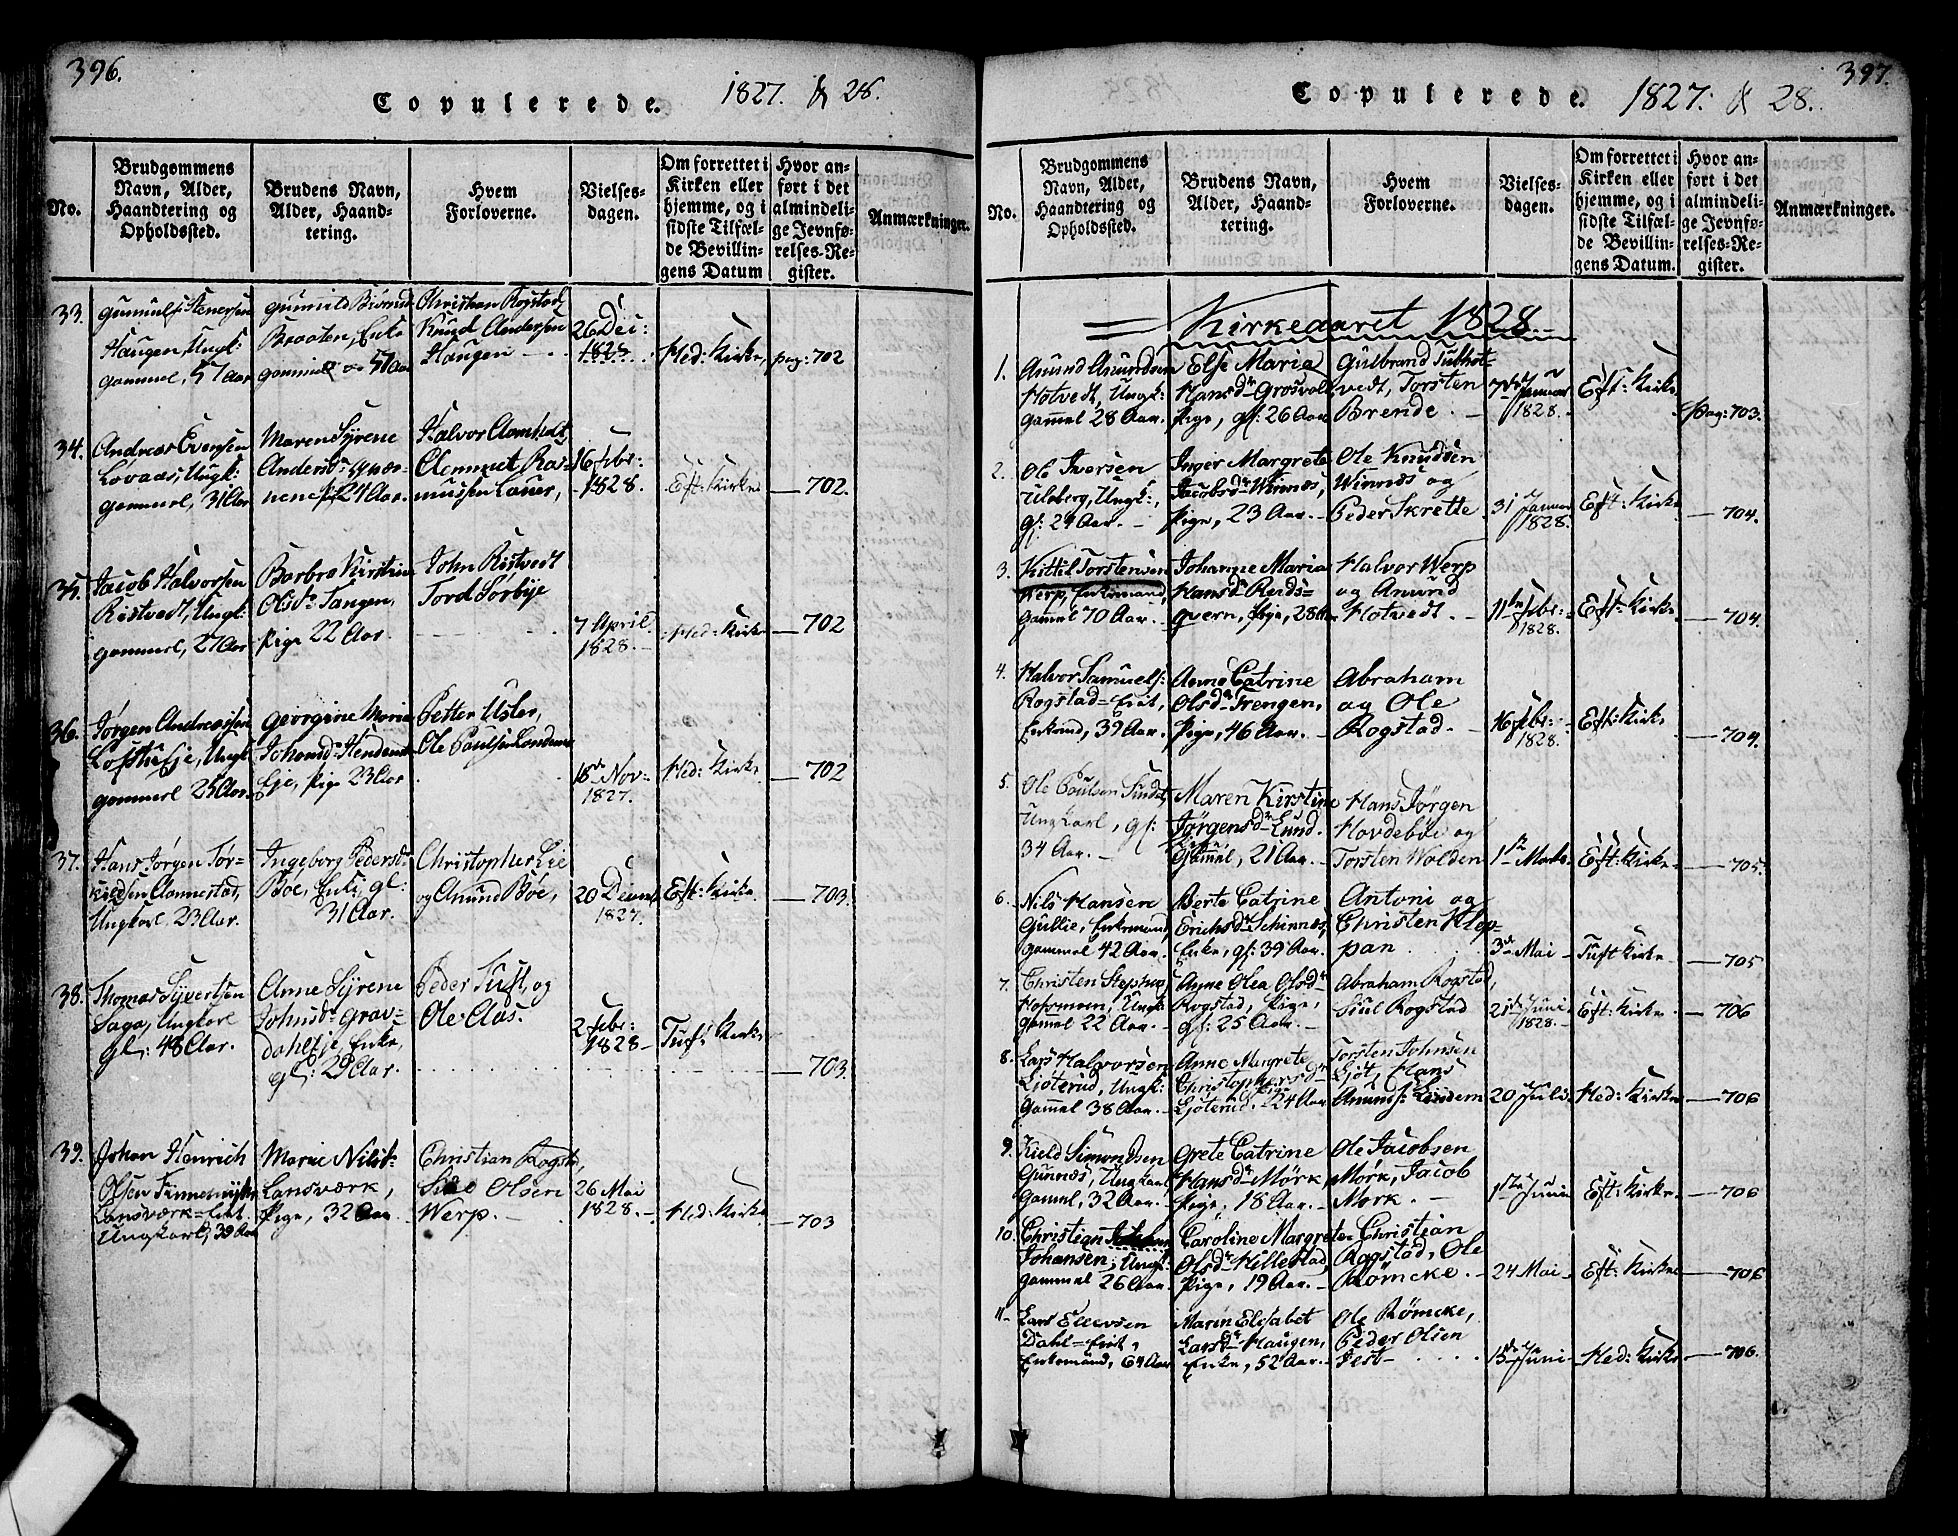 396.
Copulerede. 1827. & 28.
No.
Brudgommens Navn, Alder, Haandtering og Opholdssted.
Brudens Navn, Alder, Haandtering.
Hvem Forloverne.
Vielsesdagen.
Om forrettet i Kirken eller hjemme, og i sidste Tilfælde Bevillingens Datum
Hvor anført i det almindelige Jevnførelses-Register.
Anmærkninger.
33. Haugen, Ungk: gammel, 57 Aar
Braaten, Enke gammel 57 Aar
Christian Rogstad, Knud Andersen Haugen
26 Dec:
Hed: Kirke, pag: 702
34. Andreas Evensen Lovaas, Ungk: gammel, 31 Aar
Maren Syrene 24 Aar.
Halvor
16 Febr: 1828.
Eft: Kirke 702.
35. Jacob Halvorsen Ristvedt, Ungk: gammel, 27 Aar
Barbro Kirstine Olsdr Tangen, Pige 22 Aar.
John Ristvedt Tord Sørbye
7 April 1828.
Hed: Kirke 702
36. Jørgen Andreassen Ungk gammel 25 Aar.
Georgine Maria Eje, Pige 23 Aar
Petter Usler, Ole Paulsen
18de Nov: 1827.
Hed: Kirke 702
37. Hans Jørgen Tørkildsen Aannestad, Ungkarl 23 Aar.
Ingeborg Pedersd. Bøe, Enke, gl: 31 Aar.
Christopher Lie og Anund Bøe,
20 Decemb 1827.
Eft: Kirke 703.
38. Thomas Syvertsen Saga, Ungkarl gl: 48 Aar.
Anne Syrene Johnsdr Gravdahleje, Enke, gl: 29 Aar.
Peder Tuft, og Ole Aas.
2 Febr: 1828
Tuft Kirke 703.
39. Johan Henrich Olsen Ungkarl, 39 Aar
Marie Nilsd: Lansværk, Pige, 32 Aar
Christian Rogst, Olsen Werp.
26 Mai 1828.
Hed: Kirke 703
397.
Copulerede. 1827. & 28.
No.
Brudgommens Navn, Alder, Haandtering og Opholdssted.
Brudens Navn, Alder, Haandtering.
Hvem Forloverne.
Vielsesdagen.
Om forrettet i Kirken eller hjemme, og i sidste Tilfælde Bevillingens Datum.
Hvor anført i det almindelige Jevnførelses-Register.
Anmærkninger.
Kirkeaaret 1828
1. Anund Anundsen Hotvedt, Ungk: gammel 28 Aar.
Else Maria Hansdr Grosvold Pige, gl: 26 Aar
Gulbrand Torsten Brende.
7de Januar 1828.
Eft: Kirke pag: 703.
2. Ole Iversen Ulsberg, Ungk:, gl: 29 Aar.
Inger Margrete Jacobsdr Winnæs, Pige, 23 Aar.
Ole Knudsen Winnæs og Peder Skrette
31 Januar 1828.
Eft: Kirke 704.
3. Kittil Torstensen Werp, Enkemand, gammel 70 Aar.
Johanne Maria Hansdr Pige, 28 Aar
Halvor Werp og Anund Hotvedt.
11te Febr: 1828.
Eft: Kirke 704.
4. Halvor Samuels: Rogstad=Eiet, Enkemd, 39 Aar.
Anne Catrine Olsdr Trengen, Pige, 46 Aar.
Abraham og Ole Rogstad.
16 Febr: 1828.
Eft: Kirke 704.
5. Ole Paulsen Sundet, Ungkarl, gl: 34 Aar.
Maren Kirstine Jørgensdr Lund. Gammel, 21 Aar.
Hans Jørgen Hovdebøe og Torsten Wolden
1ste Marts.
Eft: Kirke 705.
6. Nils Hansen Gullie, Enkemand, gammel 42 Aar.
Berte Catrine Erichsdr Schinnæs, Enke, gl: 39 Aar.
Antoni og Christen Kleppan
3de Mai
Tuft Kirke 705
7. Christen Ungk gammel 22 Aar.
Anne Olea Olsdr Rogstad, Pige, gl: 25 Aar.
Abraham Rogstad, Siul Rogstad
21de Juni 1828.
Eft: Kirke 706
8. Lars Halvorsen Ljøterud, Ungk: Gammel 38 Aar.
Anne Margrete Christophersdr Ljøterud. Pige 24 Aar
Torsten Johnsen Ljøt, Hans Anunds: Lindem
20 Juli
Hed: Kirke 706
9. Kield Simondsen Gunnæs, Ungkarl, Gamml, 32 Aar.
Grete Catrine Hansdr Mørk, Pige, 18 Aar.
Ole Jacobsen Mørk, Jacob Mørk.
1ste Juni
Eft: Kirke 706
10. Christian Johansen, Ungk: gammel 26 Aar.
Caroline Margrete Olsdr Hillestad, Pige, 19 Aar.
Christian Rogstad, Ole Rømcke.
24 Mai
Eft: Kirke 706
11. Lars Ellevsen Dahl=Eiet, Enkemand, 64 Aar
Maren Elisabet Larsdr Haugen, Enke, 52 Aar.
Ole Rømcke, Peder Olsen Fest
15de Juni
Hed: Kirke 706.